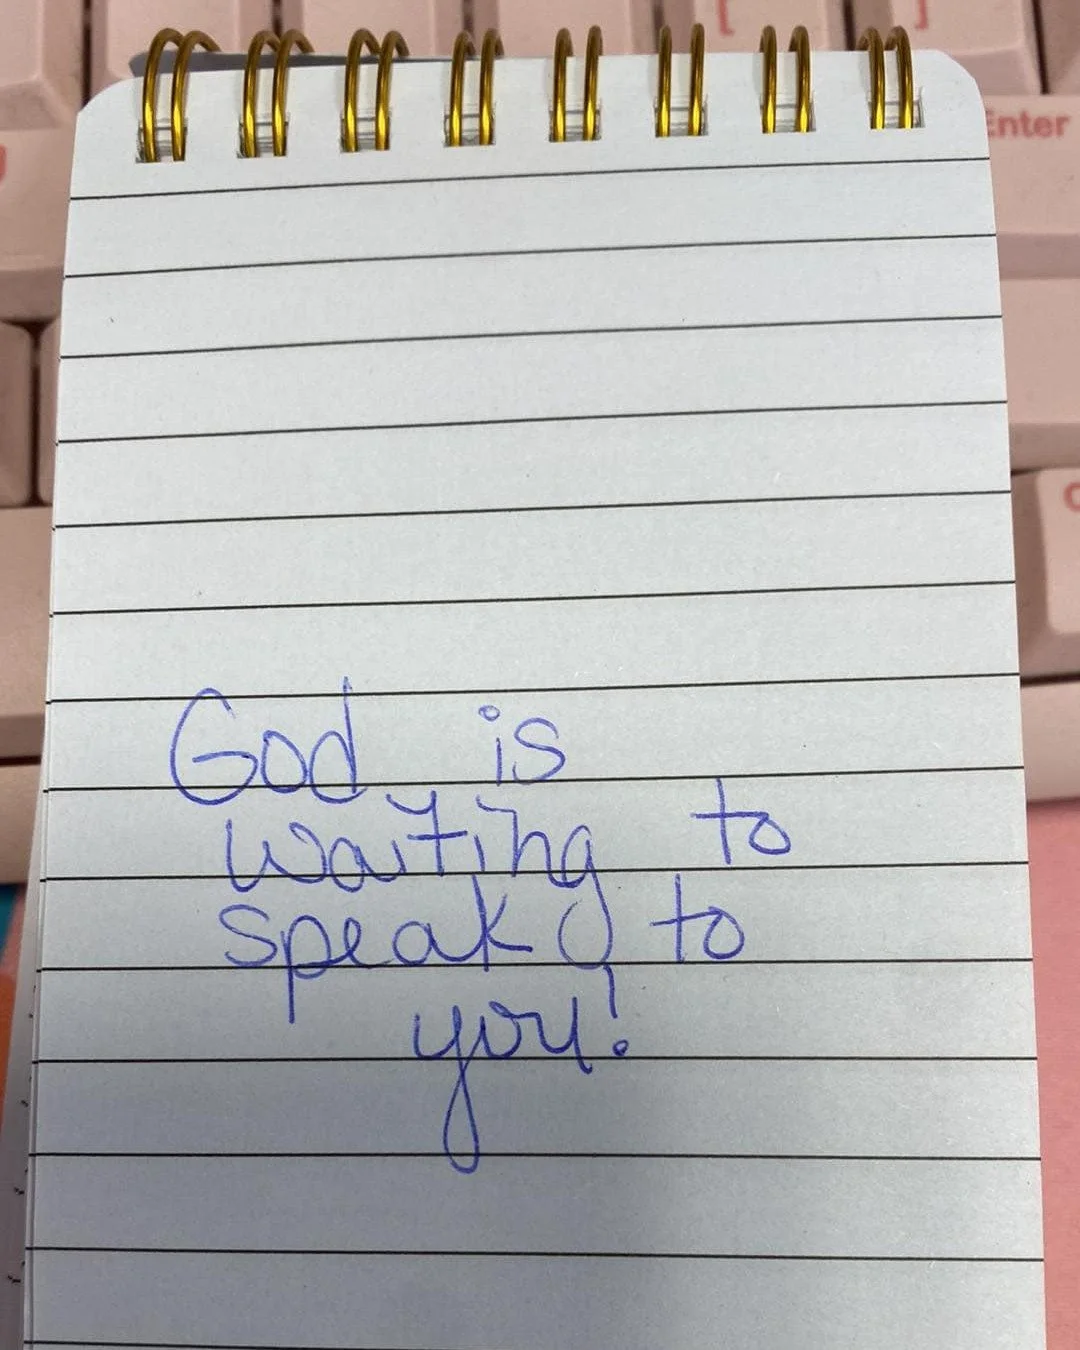 [ ]
Enter
God is
waiting to
speak to
you!